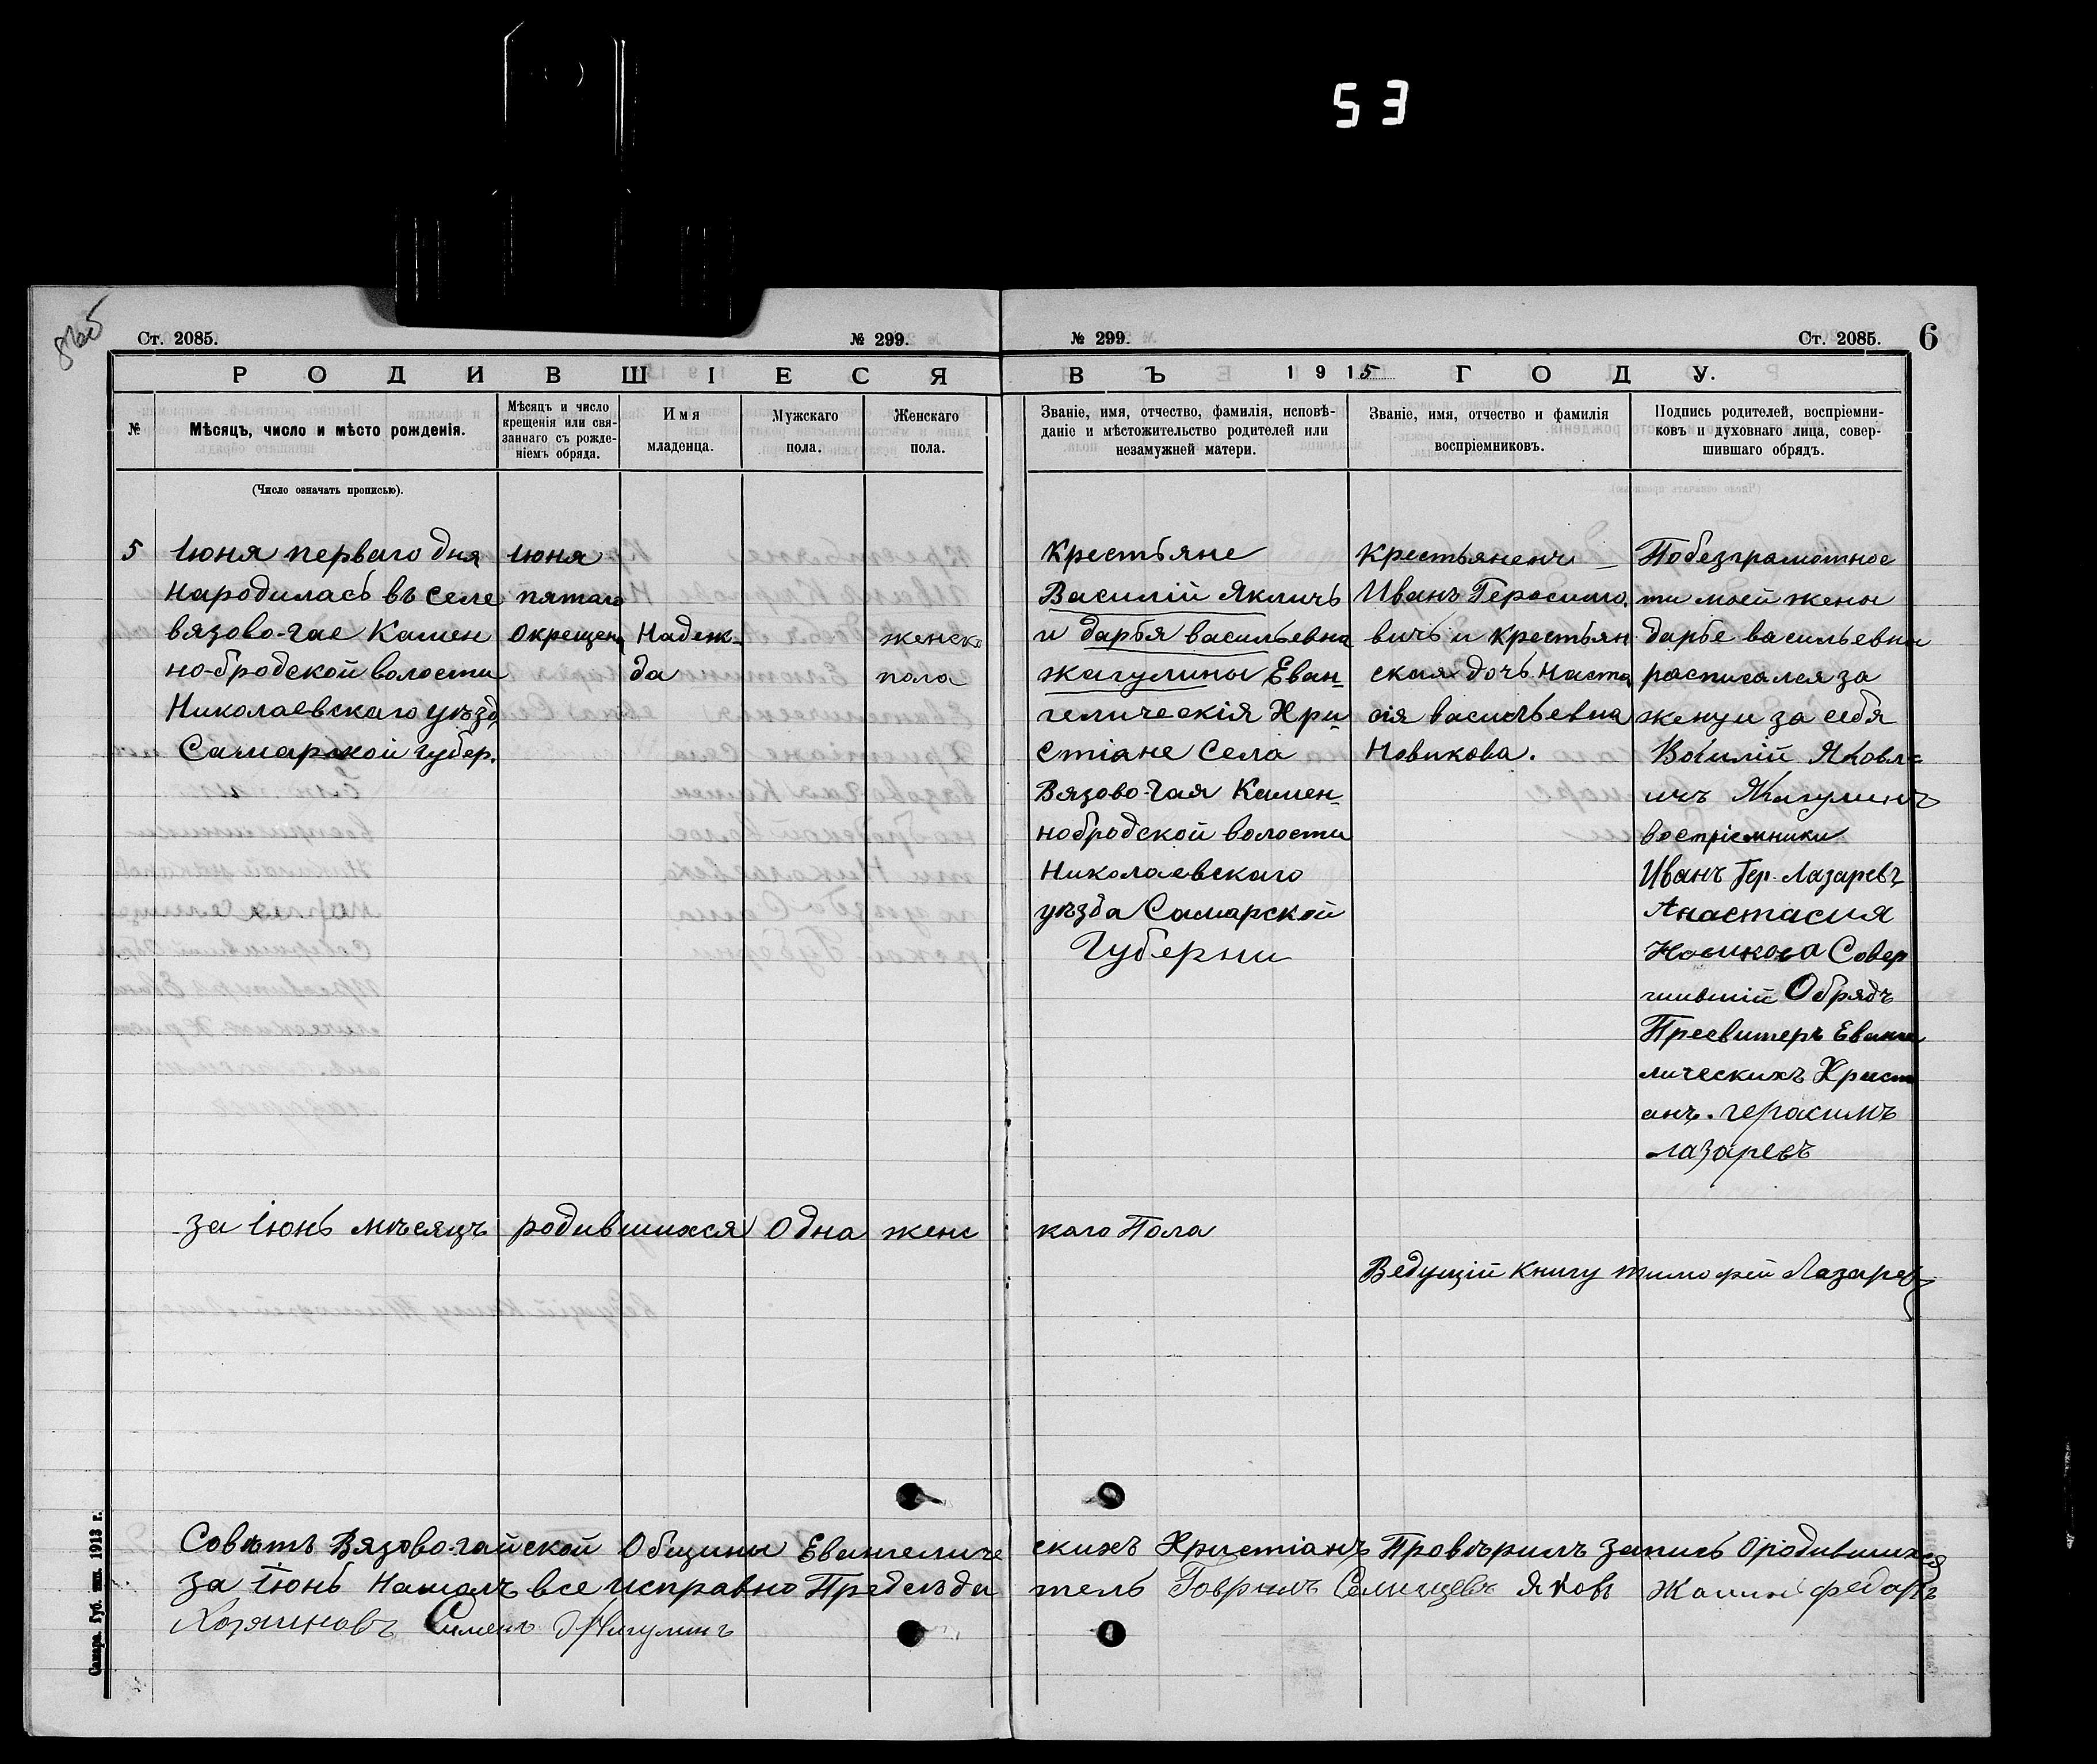 53
Ст. 2085. № 299.
№ 299. Ст. 2085. 6
РОДИВШІЕСЯ
ВЪ 1915 ГОДУ.
№
Мѣсяцъ, число и мѣсто рожденія.
Мѣсяцъ и число
крещенія или свя-
заннаго съ рожде-
ніемъ обряда.
Имя
младенца.
Мужскаго
пола.
Женскаго
пола.
Званіе, имя, отчество, фамилія, исповѣ-
даніе и мѣстожительство родителей или
незамужней матери.
Званіе, имя, отчество и фамилія
воспріемниковъ.
Подпись родителей, воспріемни-
ковъ и духовнаго лица, совер-
шившаго обрядъ.
(Число означать прописью).
5
Іюня перваго дня
народилась въ селе
вязово-гае Камен
но-бродской волости
Николаевскаго уѣзд
Самарской губер.
Іюня
пятаго
окрещена
Надеж-
да
женско
пола
Крестьяне
Василій Якличъ
и дарья васильевна
жагулины Еван-
гелическія Хри-
стіане Села
Вязово-Гая Камен-
нобродской волости
Николаевскаго
уѣзда Самарской
Губерни
Крестьяненъ
Иванъ Герасимо.
вичъ и крестьян
ская дочь Наста
сія васильевна
Новикова.
Побезграмотнос
ти моей жены
дарье васильевны
расписался за
жену и за себя
Василій Яковл=
ичъ Жагулинъ
воспріемники
Иванъ Гер. Лазаревъ
Анастасия
Новикова Совер
шившій Обрядъ
Пресвитеръ Еванге
лическихъ Христ
анъ. герасимъ
лазаревъ
за іюнь мѣсяцъ родившихся Одна женс
каго Пола
Ведущій книгу тимофей Лазаревъ
Совѣтъ Вязово-гайской Общины Евангеличе
скихъ Христіанъ Провѣрилъ запись Ородившихся
за Іюнь Нашолъ все исправно Предсѣда
тель Гаврилъ Селищевъ Яковъ Жалин федоръ
Хозяиновъ Сименъ Жигулинъ
Самара. Губ. тип. 1913 г.